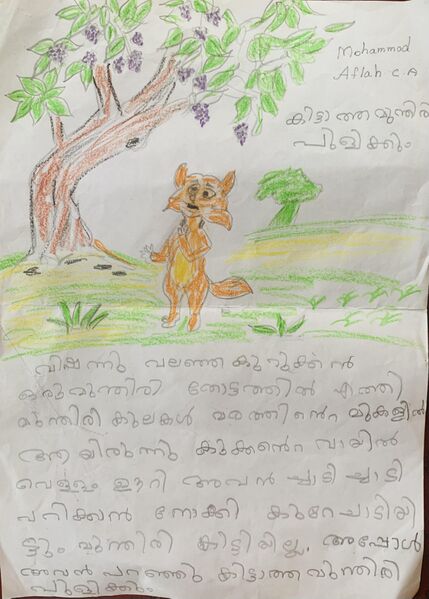 Mohammod
Aflah C.A
കിട്ടാത്തമുന്തിരി
പുളിക്കും
വിഷന്നു വലഞ്ഞ കുറുക്കൻ
ഒരുമുന്തിരി തോട്ടത്തിൽ എത്തി
മുന്തിരി കുലകൾ മരത്തിൻെറ മുകളിൽ
ആയിരുന്നു കുക്കൻെറ വായിൽ
വെള്ളം ഊറി അവൻ ചാടി ചാടി
പറിക്കാൻ നോക്കി കുറേ ചാടിയി
ട്ടും മുന്തിരി കിട്ടിയില്ല. അപ്പോൾ
അവൻ പറഞ്ഞു കിട്ടാത്ത മുന്തിരി
പുളിക്കും